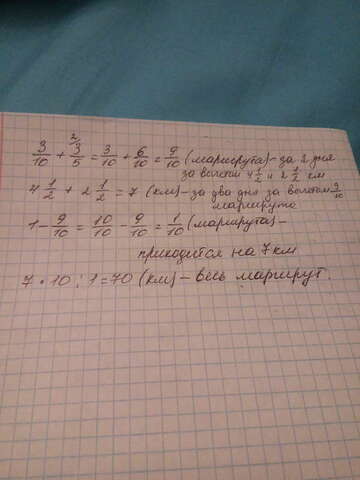 2
3/10 + 3/5 = 3/10 + 6/10 = 9/10 (маршрута) - за 2 дня
за вычетом 4 1/2 и 2 1/2 км
4 1/2 + 2 1/2 = 7 (км) - за два дня за вычетом 9/10
маршрута
1 - 9/10 = 10/10 - 9/10 = 1/10 (маршрута) -
приходится на 7 км
7 • 10 : 1 = 70 (км) - весь маршрут.